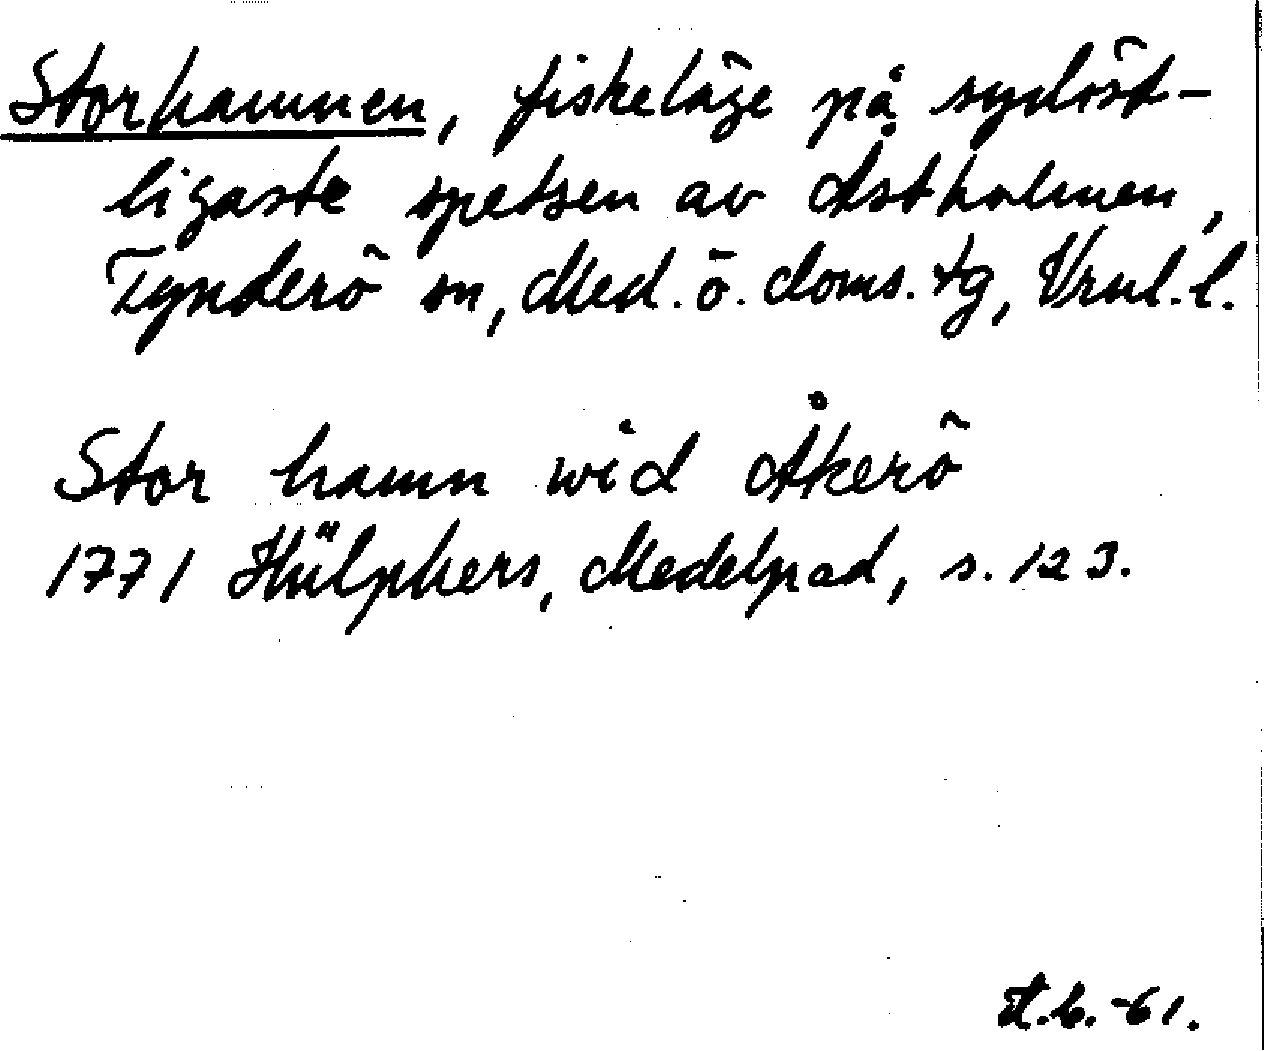 Storhamnen, fiskeläge på sydöst-
ligaste spetsen av Åstholmen,
Tynderö sn, Med. ö. doms. tg, Vrnl. l.
Stor hamn wid Åkerö
1771 Hülphers, Medelpad, s. 123.
A.b. -61.